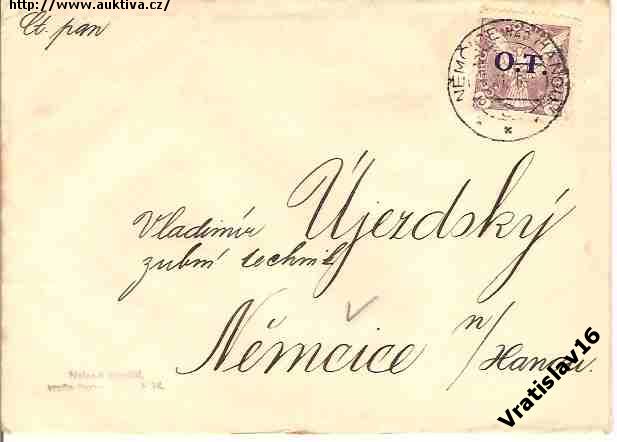 http://www.auktiva.cz/
Ct. pan
O.T.
Vladimír Újezdský
zubní technik
Němčice n/Hanou.
Vratislav16